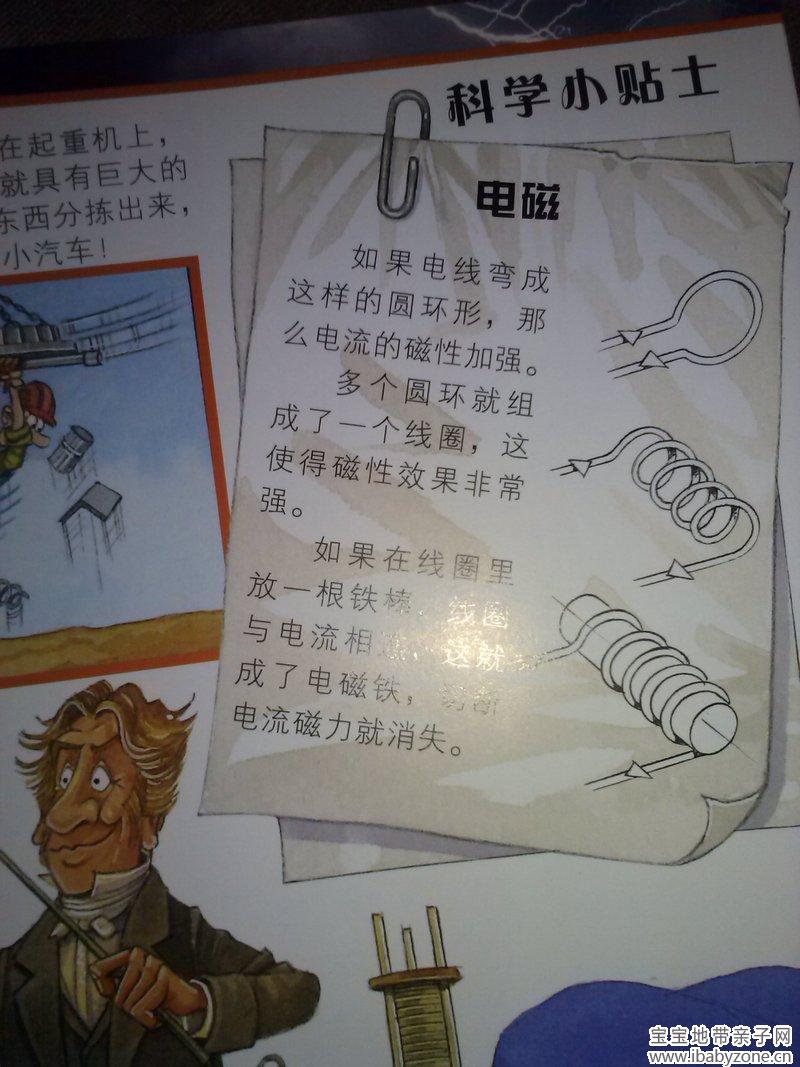 科学小贴士
在起重机上，
就具有巨大的
东西分拣出来，
小汽车！
电磁
如果电线弯成
这样的圆环形，那
么电流的磁性加强。
多个圆环就组
成了一个线圈，这
使得磁性效果非常
强。
如果在线圈里
放一根铁棒，线圈
与电流相连，这就
成了电磁铁，切断
电流磁力就消失。
宝宝地带亲子网
www.ibabyzone.cn